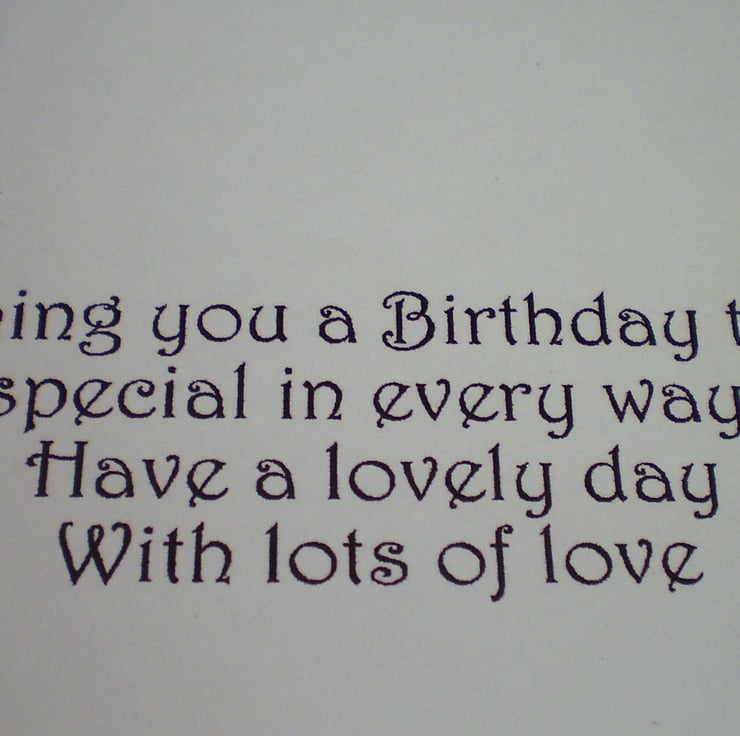 ing you a Birthday t
special in every way
Have a lovely day
With lots of love